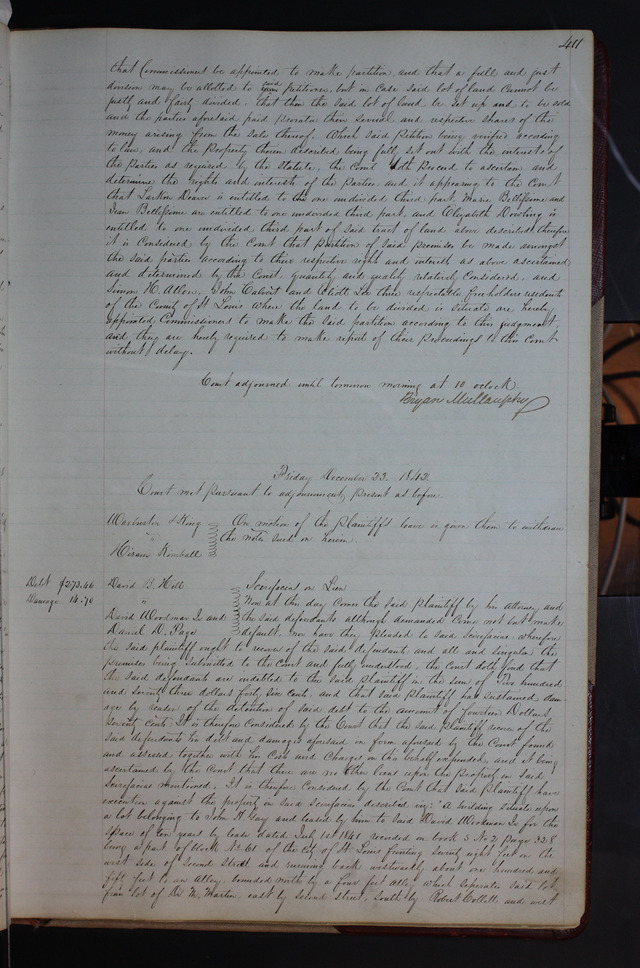 411
that Commissioners be appointed to make partition, and that a full and just
division may be allotted to said petitioners, but in case said lot of land cannot be
justly and fairly divided, that then the said lot of land be set up and to be sold
and the parties aforesaid paid prorata their several and respective shares of the
money arising from the sale thereof. Which said Petition being verified according
to law, and the Property therein described being fully set out with the interests of
the Parties as required by the Statute, the Court doth Proceed to ascertain and
determine the rights and interests of the Parties, and it appearing to the Court
that Larkin Deaver is entitled to the one undivided third part, Marie Bellissime and
Jean Bellissime are entitled to one undivided third part, and Elizabeth Dowling is
entitled to one undivided third part of said tract of land above described, therefore
it is Considered by the Court that partition of said premises be made amongst
the said parties according to their respective right and interests as above ascertained
and determined by the Court, quantity and quality relatively Considered, and
H. Allen, John Calvert and Elliott Lee three respectable freeholders residents
of the County of St Louis where the land to be divided is Situate are hereby
appointed Commissioners to make the said partition according to this judgment,
and they are hereby required to make report of their Proceedings to this Court
without delay.
Court adjourned until tomorrow morning at 10 oclock.
Bryan Mullanphy
Friday December 23. 1842.
Court met pursuant to adjournment, present as before.
Warburton & King On motion of the Plaintiffs leave is given them to withdraw
the note sued on herein.
Hiram Kimball
Debt $273.46 David B. Hill Scirefacias on Lien
Damage 14.70 Now at this day comes the said Plaintiff by his attorney and
David Woodman Jr and the said defendants although demanded Come not but make
Daniel D. Page default. nor have they Pleaded to said Scirefacias wherefore
the said plaintiff ought to recover of the said defendants and all and singular the
premises being submitted to the Court and fully understood, the Court doth find that
the said defendants are indebted to the said Plaintiff in the sum of Two hundred
and seventy three dollars forty six cents, and that said Plaintiff has sustained dam-
age by reason of the detention of said debt to the amount of Fourteen Dollars
seventy cents. It is therefore Considered by the Court that the said Plaintiff recover of the
said defendants his debt and damages aforesaid in form aforesaid by the Court found
and assessed together with his Costs and Charges in this behalf expended, and it being
ascertained by the Court that there are no other liens upon the Property in said
Scirefacias mentioned. It is therefore Considered by the Court that said Plaintiff have
execution against the property in said Scirefacias described viz: "A building situate upon
a lot belonging to John H. Gay and leased by him to said David Woodman Jr for the
space of ten years by lease dated July 1st 1841, recorded in book S No 2, page 328
being a part of block No 61 of the City of St Louis fronting seventy eight feet on the
west side of second street and running back westwardly about one hundred and
fifty feet to an alley, bounded north by a four feet alley which seperates said lot
from lot of M. Martin, east by second street, South by Robert Collett and west